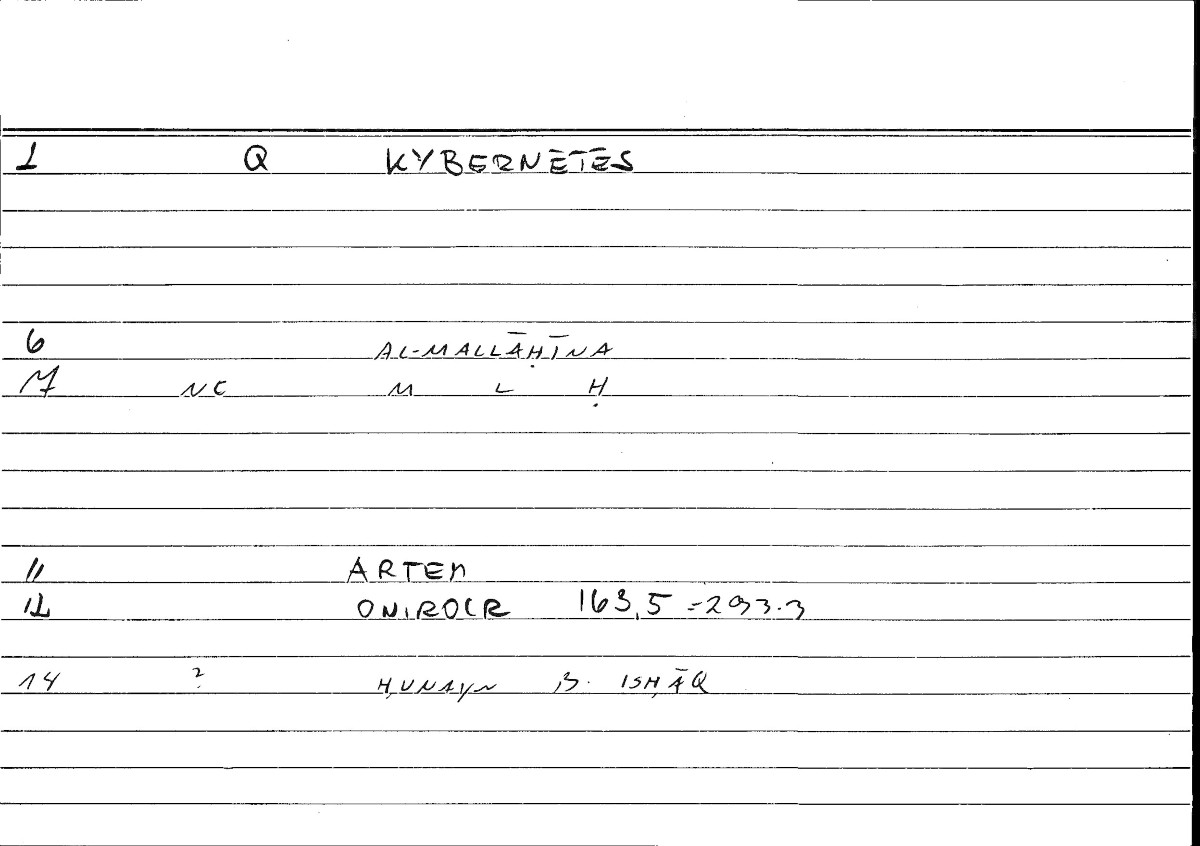 1 Q KYBERNĒTĒS
6 AL-MALLĀḤĪNA
7 NC M L Ḥ
11 ARTEM
12 ONIROCR 163,5 = 293.3
14 ? ḤUNAYN B. ISḤĀQ